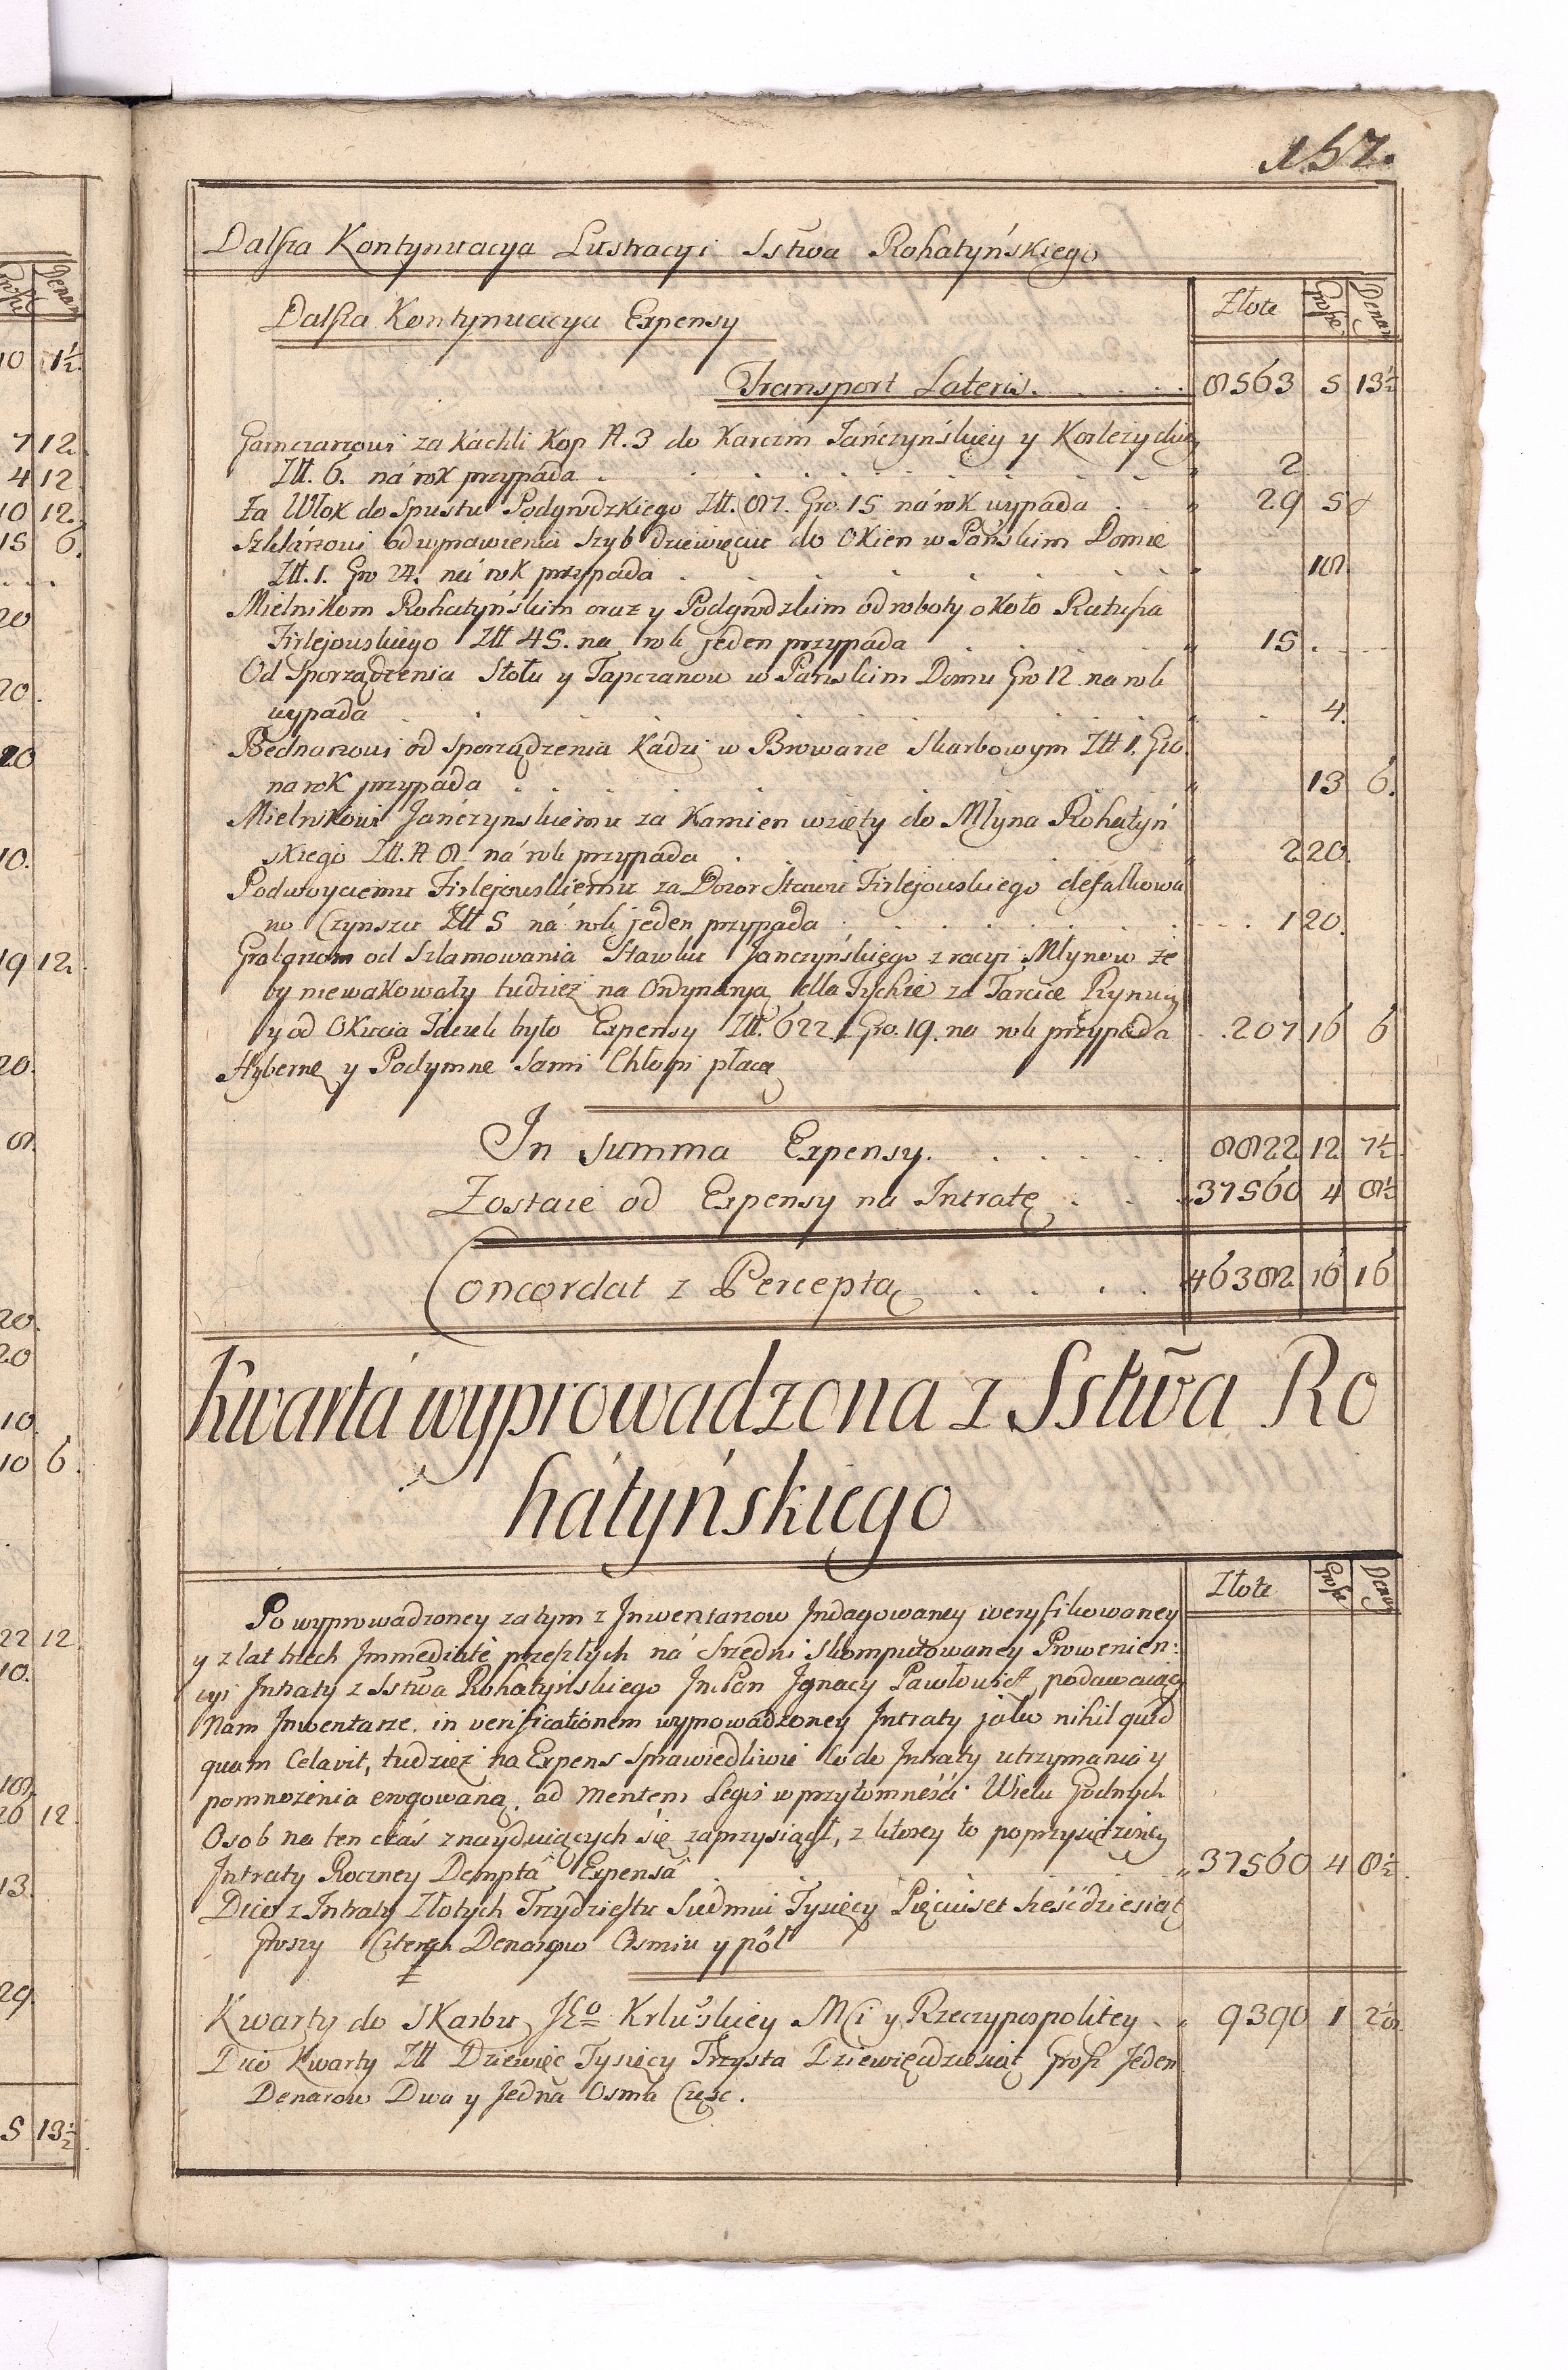 157.
Dalsza Kontynuacya Lustracyi Sstwa Rohatyńskiego
Dalsza Kontynuacya Expensy
Złote Grosze Denary
Transport Lateris. 8563 5 13½
Garncarzowi za kachli Kop N. 3 do Karczm Jańczyńskiey y Korlezyckiey
Złł. 6. na rok przypada 2
Za Włok do Spustu Podgrodzkiego Złł. 87. Gro. 15 na rok wypada 29 5
Szklarzowi od wprawienia Szyb dziewięciu do Okien w Pańskim Domie
Złł. 1. Gro 24. na rok przypada 18.
Mielnikom Rohatyńskim oraz y Podgrodzkim od roboty około Ratusza
Firlejowskiego Złł 45. na rok jeden przypada 15
Od Sporządzenia Stołu y Tapczanow w Pańskim Domu Gro 12 na rok
wypada 4.
Bednarzowi od sporządzenia Kadzi w Browarze Skarbowym Złł 1. Gro.
na rok przypada 13 6.
Mielnikowi Jańczynskiemu za Kamien wzięty do Młyna Rohatyń
skiego Złł. N 8. na rok przypada 2 20.
Podwoyciemu Firlejowskiemu za Dozor Stawu Firlejowskiego defalkowa
no Czynszu Złł 5 na rok jeden przypada 1 20.
Grabarzom od Szlamowania Stawku Janczyńskiego z racyi Młynow że
by niewakowały tudzież na Ordynaryą dla Tychże za Tarcice Rynwy
y od Okucia Także było Expensy Złł. 622. Gro. 19. na rok przypada 207 16 6
Hybernę y Podymne Sami Chłopi płacą
In Summa Expensy. 8822 12 7½
Zostaie od Expensy na Intratę 37560 4 8½
Concordat z Perceptą 46382 16 16
Kwarta wyprowadzona z Sstwa Ro
hatyńskiego
Złote Grosze Denary
Po wyprowadzoney zatym z Inwentarzow Indagowaney weryfikowaney
y z lat trech Immediate przeszłych na Srzedni skomputowaney Prowenien:
cyi Intraty z Sstwa Rohatyńskiego Im Pan Ignacy Pawłowski podawaiąc
Nam Inwentarze in verificationem wyprowadzoney Intraty jako nihil quid
quam Celavit, tudzież na Expens sprawiedliwie co do Intraty utrzymania y
pomnożenia erogowaną, ad mentem Legis w przytomności Wielu Godnych
Osob na ten czas znayduiących się zaprzysiągł, z ktorey to poprzysiężoney
Intraty Roczney Dempta Expensa 37560 4 8½
Dico z Intraty Złotych Trzydziestu Siedmiu Tysięcy Pięciuset Sześćdziesiąt
Groszy Czterech Denarow Osmiu y poł
Kwarty do Skarbu JKo Krluskiey Mci y Rzeczypospolitey 9390 1 2⅛
Dico Kwarty Złł Dziewięc Tysięcy Trzysta Dziewięćdziesiąt Grosz Jeden
Denarow Dwa y Jedna Osma Częsc.